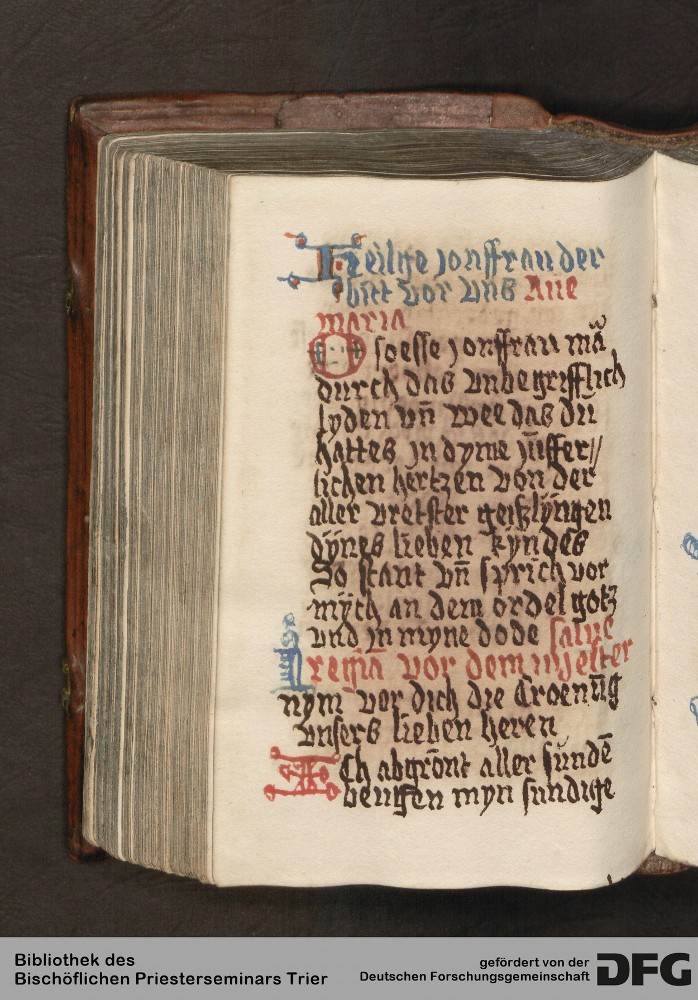 Heilige jonffrau der
bitt vor vns Aue
maria
O soesse jonffrau mā
durch das vnbegrifflich
lyden vn̄ wee das du
hattes jn dyme jūffer//
lichen hertzen von der
aller vretster geiszlyngen
dynes lieben kyndes
So stant vn̄ sprich vor
mych an dem ordel gotz
vnd jn myne dode salue
regīa vor dem mjelter
nym vor dich die Croenūg
vnsers lieben heren
Ach abgrōnt aller sundē
beugen myn sundige
Bibliothek des
Bischöflichen Priesterseminars Trier
gefördert von der
Deutschen Forschungsgemeinschaft
DFG